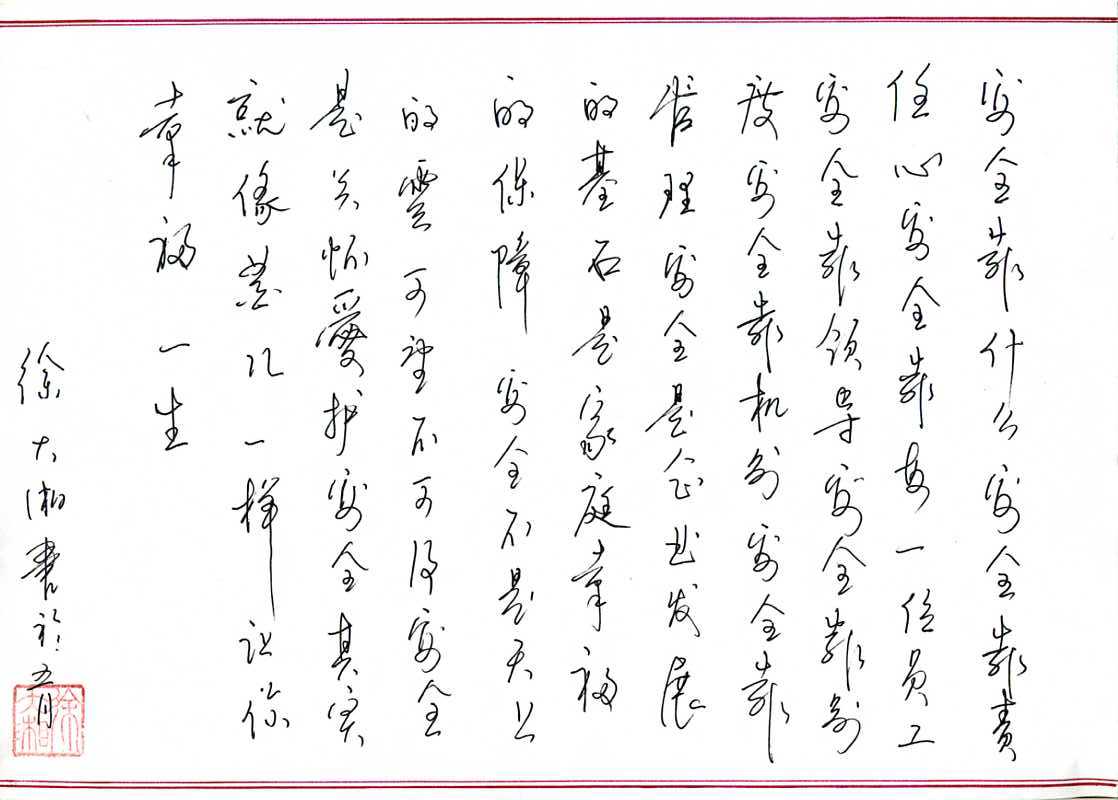 安全靠什么安全靠责
任心安全靠每一位员工
安全靠领导安全靠制
度安全靠机制安全靠
管理安全是企业发展
的基石是家庭幸福
的保障 安全不是天上
的雲可望不可得安全
是关怀愛护安全其实
就像一样让你
幸福一生
徐大湘書於五月